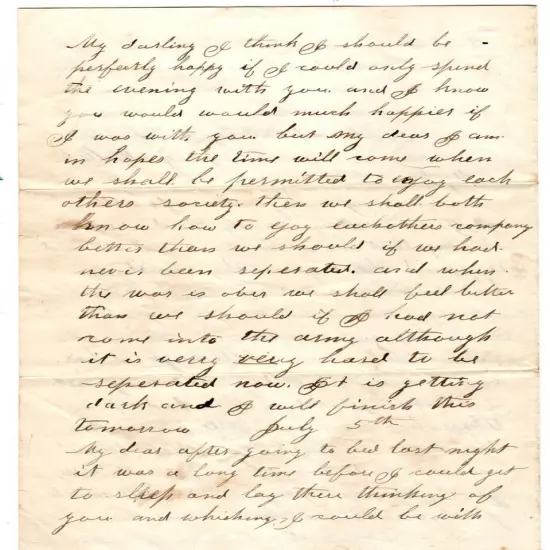 My darling I think I should be
perfectly happy if I could only spend
the evening with you. and I know
you would would much happier if
I was with you. but my dear I am
in hopes the time will come when
we shall be permitted to enjoy each
others society. then we shall both
know how to ejoy eachothers company
better than we should if we had
never been seperated. and when
the war is over we shall feel better
than we should if I had not
come into the army although
it is verry verry hard to be
seperated now. It is getting
dark and I will finish this
tomorrow July 5th
My dear after going to bed last night
it was a long time before I could get
to sleep and lay there thinking of
you and whishing I could be with